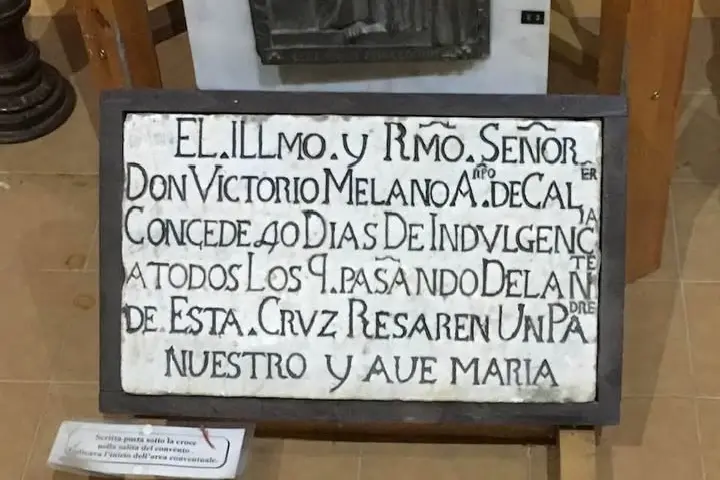 EL. ILLMO. y RMO. SEÑOR
DON VICTORIO MELANO A.ᴾᴼ DE CAL.ᴱᴿ
CONCEDE 40 DIAS DE INDVLGENCIA
A TODOS LOS q. PASANDO DELANTE
DE ESTA. CRVZ RESAREN UN PADRE
NUESTRO y AUE MARIA
Scritta posta sotto la croce
nella salita del convento
l'inizio dell'area conventuale.